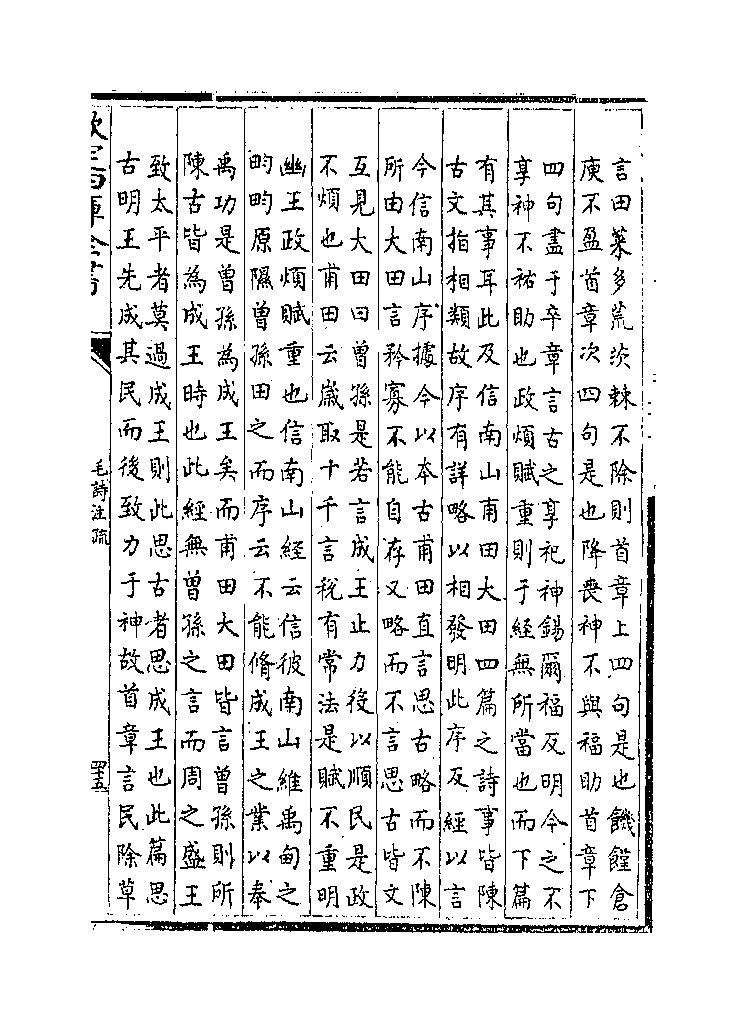 言田萊多荒茨棘不除則首章上四句是也饑饉倉
庾不盈首章次四句是也降喪神不與福助首章下
四句盡于卒章言古之享祀神錫爾福反明今之不
享神不祐助也政煩賦重則于經無所當也而下篇
有其事耳此及信南山甫田大田四篇之詩事皆陳
古文指相類故序有詳略以相發明此序反經以言
今信南山序據今以本古甫田直言思古略而不陳
所由大田言矜寡不能自存又略而不言思古皆文
互見大田曰曾孫是若言成王止力役以順民是政
不煩也甫田云歲取十千言稅有常法是賦不重明
幽王政煩賦重也信南山經云信彼南山維禹甸之
畇畇原隰曾孫田之而序云不能脩成王之業以奉
禹功是曾孫為成王矣而甫田大田皆言曾孫則所
陳古皆為成王時也此經無曾孫之言而周之盛王
致太平者莫過成王則此思古者思成王也此篇思
古明王先成其民而後致力于神故首章言民除草
欽定四庫全書
毛詩注疏
四五